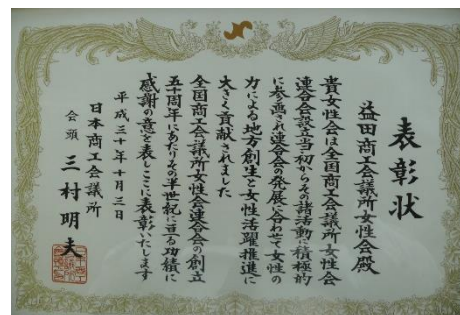 表彰状
益田商工会議所女性会殿
貴女性会は全国商工会議所女性会
連合会設立当初からその諸活動に積極的
に参画され連合会の発展に合わせて女性の
力による地方創生と女性活躍推進に
大きく貢献されました
全国商工会議所女性会連合会の創立
五十周年にあたりその半世紀に亘る功績に
感謝の意を表しここに表彰いたします
平成三十年十月三日
日本商工会議所
会頭 三村明夫